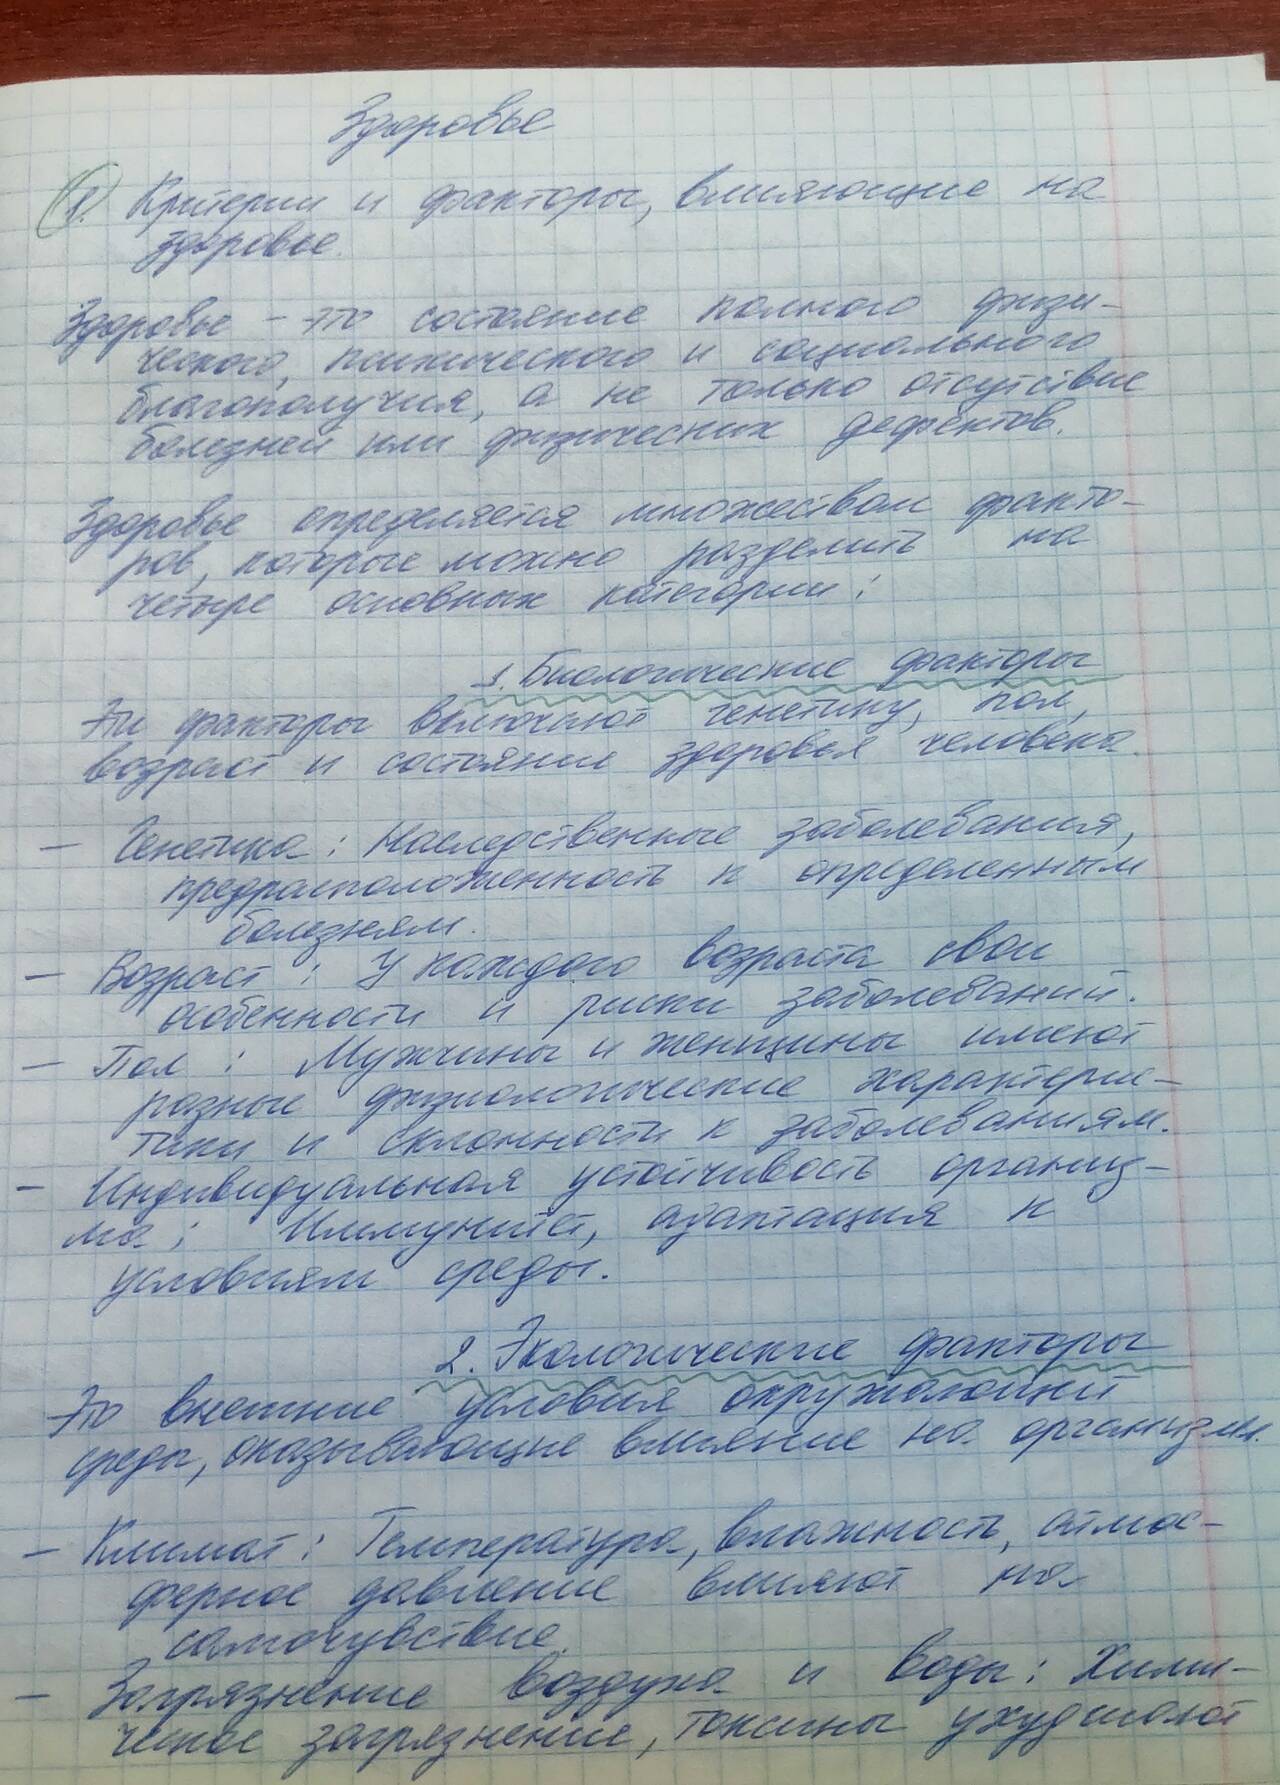 Здоровье
1. Критерии и факторы, влияющие на
здоровье.
Здоровье – это состояние полного физи-
ческого, психического и социального
благополучия, а не только отсутствие
болезней или физических дефектов.
Здоровье определяется множеством факто-
ров, которые можно разделить на
четыре основных категории:
1. Биологические факторы
Эти факторы включают генетику, пол,
возраст и состояние здоровья человека.
– Генетика: Наследственные заболевания,
предрасположенность к определенным
болезням.
– Возраст: У каждого возраста свои
особенности и риски заболеваний.
– Пол: Мужчины и женщины имеют
разные физиологические характерис-
тики и склонности к заболеваниям.
– Индивидуальная устойчивость организ-
ма: Иммунитет, адаптация к
условиям среды.
2. Экологические факторы
Это внешние условия окружающей
среды, оказывающие влияние на организм.
– Климат: Температура, влажность, атмос-
ферное давление влияют на
самочувствие.
– Загрязнение воздуха и воды: Хими-
ческое загрязнение, токсины ухудшают